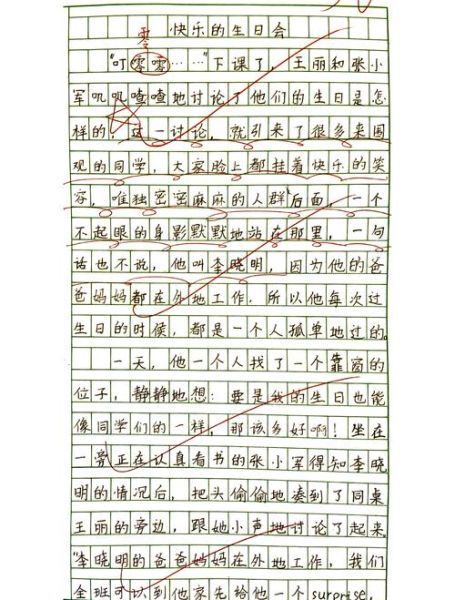 零
快乐的生日会
"叮零零……"下课了，王丽和张小
军叽叽喳喳地讨论了他们的生日是怎
样的，这一讨论，就引来了很多来围
观的同学，大家脸上都挂着快乐的笑
容，唯独密密麻麻的人群后面，一个
不起眼的身影默默地站在那里，一句
话也不说，他叫李晓明，因为他的爸
爸妈妈都在外地工作，所以他每次过
生日的时候，都是一个人孤单地过的。
一天，他一个人找了一个靠窗的
位子，静静地想：要是我的生日也能
像同学们的一样，那该多好啊！坐在
一旁正在认真看书的张小军得知李晓
明的情况后，把头偷偷地凑到了同桌
王丽的旁边，跟她小声地讨论了起来。
"李晓明的爸爸妈妈在外地工作，我们
全班可以到他家先给他一个surprise，